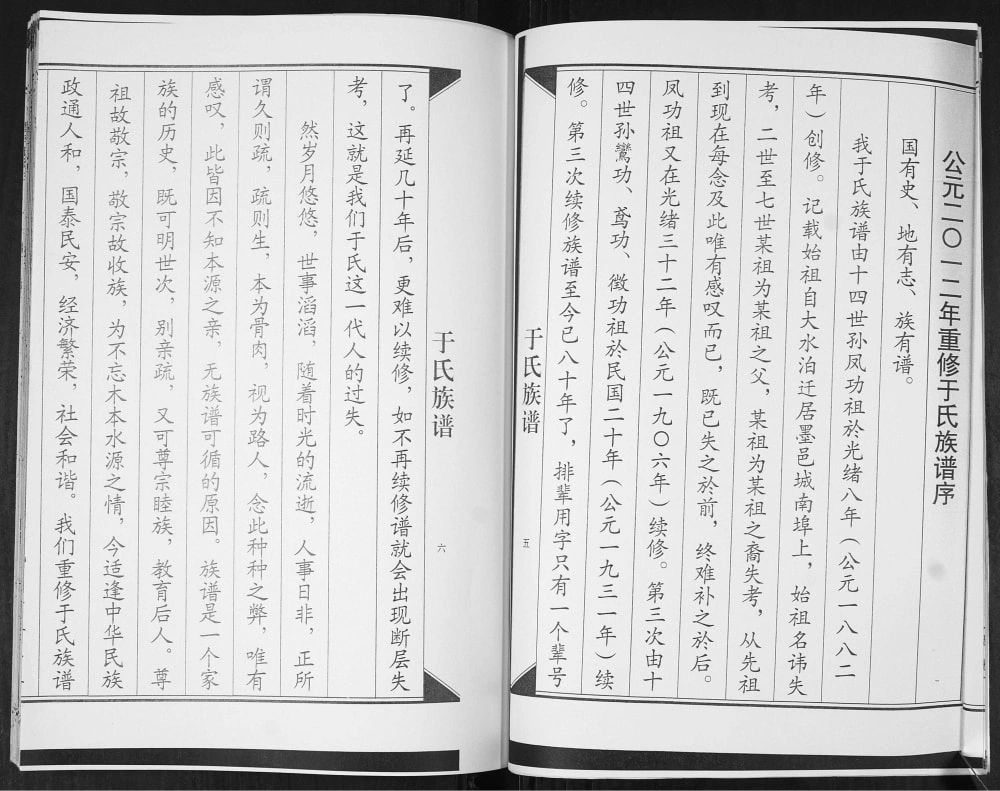 公元二〇一二年重修于氏族谱序
国有史、地有志、族有谱。
我于氏族谱由十四世孙凤功祖於光绪八年（公元一八八二
年）创修。记载始祖自大水泊迁居墨邑城南埠上，始祖名讳失
考，二世至七世某祖为某祖之父，某祖为某祖之裔失考，从先祖
到现在每念及此唯有感叹而已，既已失之於前，终难补之於后。
凤功祖又在光绪三十二年（公元一九〇六年）续修。第三次由十
四世孙鸾功、鸢功、徵功祖於民国二十年（公元一九三一年）续
修。第三次续修族谱至今已八十年了，排辈用字只有一个辈号
于氏族谱
五
于氏族谱
六
了。再延几十年后，更难以续修，如不再续修谱就会出现断层失
考，这就是我们于氏这一代人的过失。
然岁月悠悠，世事滔滔，随着时光的流逝，人事日非，正所
谓久则疏，疏则生，本为骨肉，视为路人，念此种种之弊，唯有
感叹，此皆因不知本源之亲，无族谱可循的原因。族谱是一个家
族的历史，既可明世次，别亲疏，又可尊宗睦族，教育后人。尊
祖故敬宗，敬宗故收族，为不忘木本水源之情，今适逢中华民族
政通人和，国泰民安，经济繁荣，社会和谐。我们重修于氏族谱